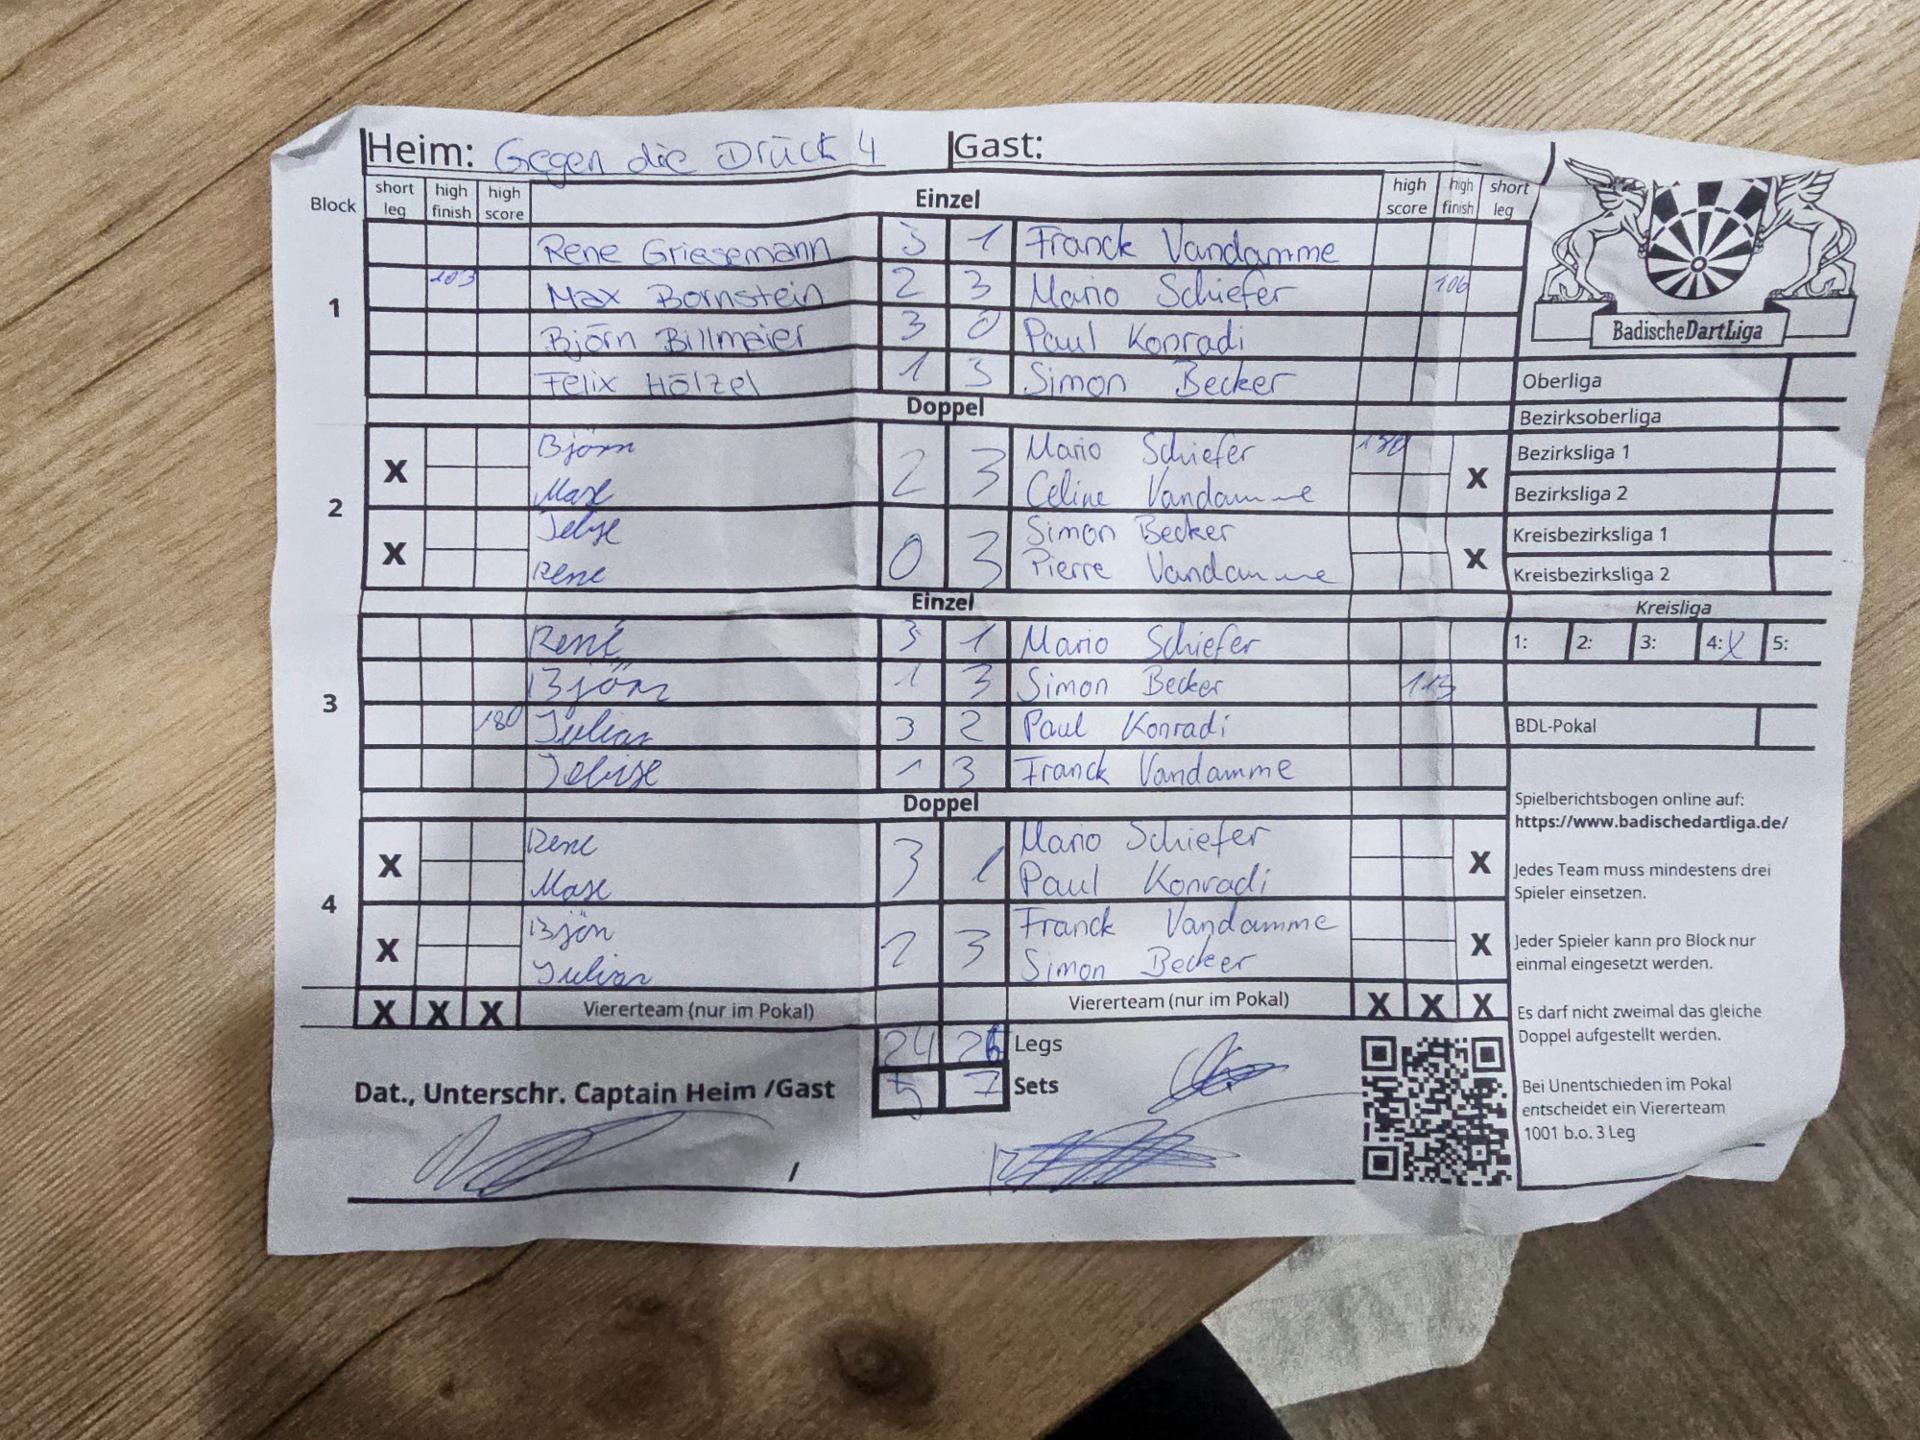 Heim: Gegen die Drück 4 Gast:
Block short leg high finish high score Einzel high score high finish short leg
Rene Griesemann 3 1 Franck Vandamme
1 103 Max Bornstein 2 3 Mario Schiefer 106
Björn Billmaier 3 0 Paul Konradi
Felix Hölzel 1 3 Simon Becker
Doppel
2
X Björn 2 3 Mario Schiefer 180 X
Max Celine Vandamme
X 0 3 Simon Becker X
Rene Pierre Vandamme
Einzel
3
René 3 1 Mario Schiefer
Björn 1 3 Simon Becker 113
180 Julian 3 2 Paul Konradi
1 3 Franck Vandamme
Doppel
4
X Rene 3 1 Mario Schiefer X
Max Paul Konradi
X Björn 2 3 Franck Vandamme X
Julian Simon Becker
X X X Viererteam (nur im Pokal) Viererteam (nur im Pokal) X X X
24 26 Legs
5 7 Sets
Dat., Unterschr. Captain Heim /Gast
/
BadischeDartLiga
Oberliga
Bezirksoberliga
Bezirksliga 1
Bezirksliga 2
Kreisbezirksliga 1
Kreisbezirksliga 2
Kreisliga
1: 2: 3: 4: X 5:
BDL-Pokal
Spielberichtsbogen online auf:
https://www.badischedartliga.de/
Jedes Team muss mindestens drei
Spieler einsetzen.
Jeder Spieler kann pro Block nur
einmal eingesetzt werden.
Es darf nicht zweimal das gleiche
Doppel aufgestellt werden.
Bei Unentschieden im Pokal
entscheidet ein Viererteam
1001 b.o. 3 Leg